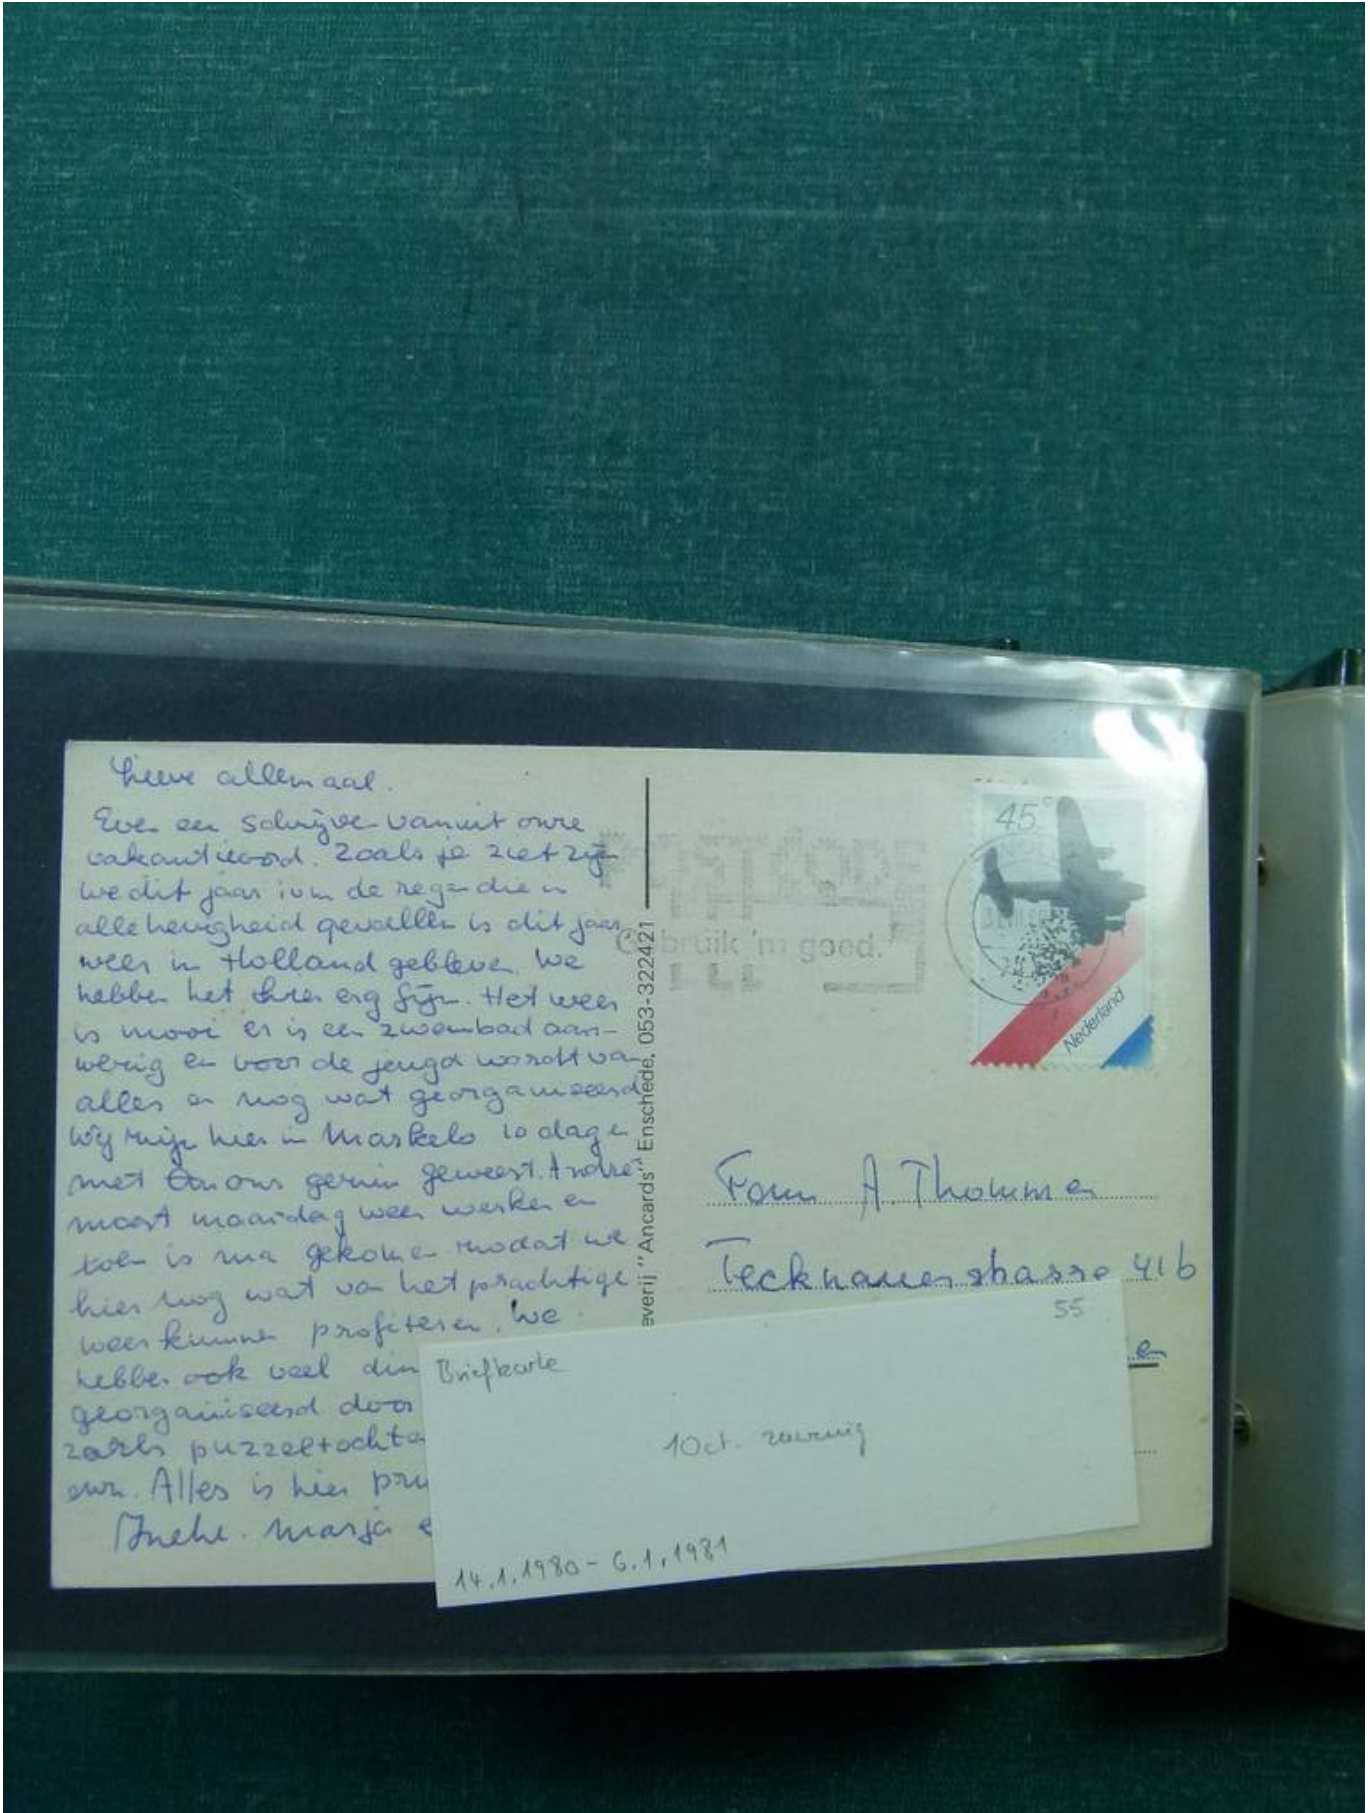 Lieve allemaal.
Even een schrijven vanuit onze
vakantieoord. Zoals je ziet zijn
we dit jaar ivm de regen die in
alle hevigheid gevallen is dit jaar
weer in Holland gebleven. We
hebben het hier erg fijn. Het weer
is mooi er is een zwembad aan-
wezig en voor de jeugd wordt van
alles en nog wat georganiseerd
Wij zijn hier in Markelo 10 dagen
met ons gezin geweest. André
moest maandag weer werken en
toen is ma gekomen zodat we
hier nog wat van het prachtige
weer kunnen profiteren. We
hebben ook veel din
georganiseerd door
zoals puzzeltochte
enz. Alles is hier pri
Ineke. Marja e
everij "Ancards" Enschede, 053-322421
Gebruik 'm goed.
45c
Nederland
Fam A. Thommen
Tecknauerstrasse 41b
en
55
Briefkarte
10ct. zuwenig
14.1.1980 - 6.1.1981